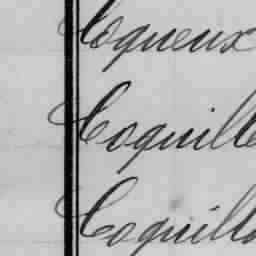 Coqueux
Coquille
Coquille